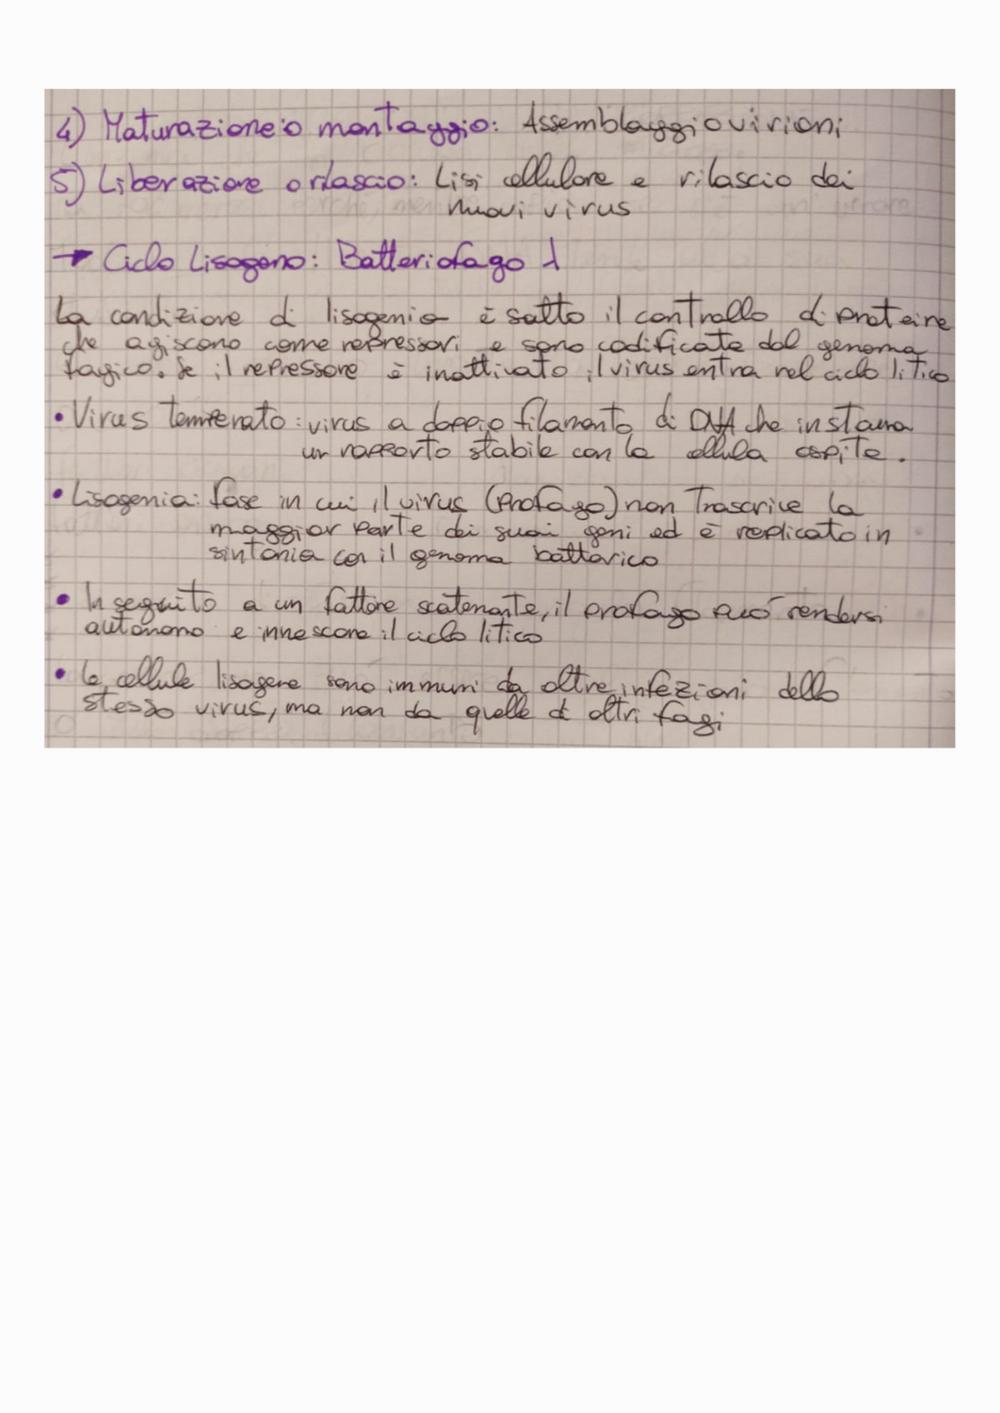 4) Maturazione o montaggio: Assemblaggio virioni
5) Liberazione o rilascio: Lisi cellulare e rilascio dei
nuovi virus
→ Ciclo Lisogeno: Batteriofago λ
La condizione di lisogenia è sotto il controllo di proteine
che agiscono come repressori e sono codificate dal genoma
fagico. Se il repressore è inattivato il virus entra nel ciclo litico
• Virus temperato: virus a doppio filamento di DNA che instaura
un rapporto stabile con la cellula ospite.
• Lisogenia: fase in cui il virus (profago) non Trascrive la
maggior parte dei suoi geni ed è replicato in
sintonia con il genoma batterico
• In seguito a un fattore scatenante, il profago può rendersi
autonomo e innescare il ciclo litico
• Le cellule lisogene sono immuni da altre infezioni dello
stesso virus, ma non da quelle di altri fagi